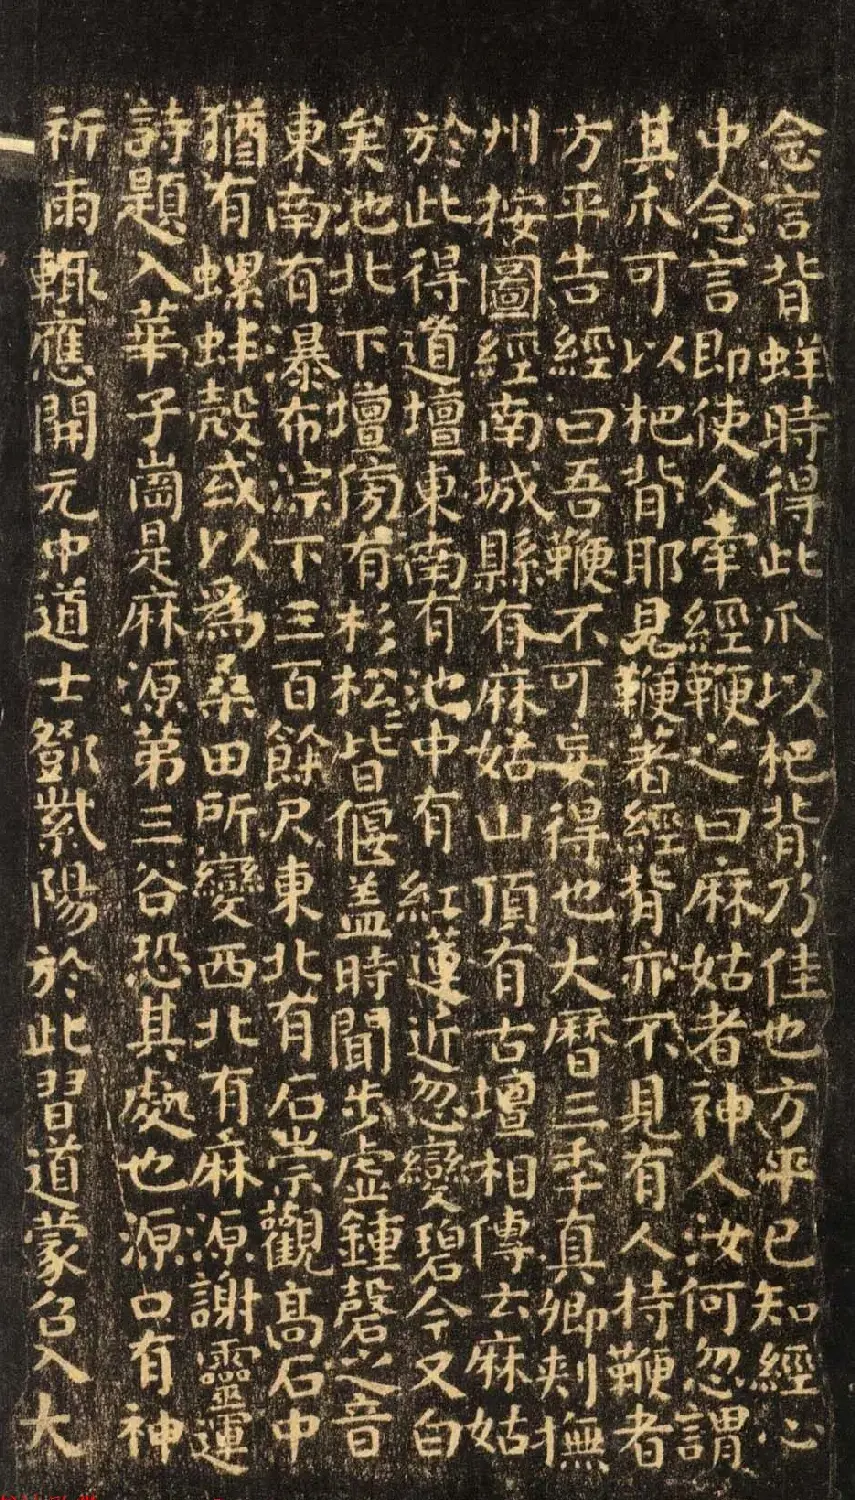 念言背蛘時得此爪以杷背乃佳也方平已知經心
中念言即使人牽經鞭之曰麻姑者神人汝何忽謂
其爪可以杷背耶見鞭著經背亦不見有人持鞭者
方平告經曰吾鞭不可妄得也大曆三年真卿刺撫
州按圖經南城縣有麻姑山頂有古壇相傳云麻姑
於此得道壇東南有池中有紅蓮近忽變碧今又白
矣池北下壇傍有杉松松皆偃盖時聞步虛鍾磬之音
東南有瀑布淙下三百餘尺東北有石崇觀高石中
猶有螺蚌殼或以為桑田所變西北有麻源謝靈運
詩題入華子崗是麻源第三谷恐其處也源口有神
祈雨輒應開元中道士鄧紫陽於此習道蒙召入大